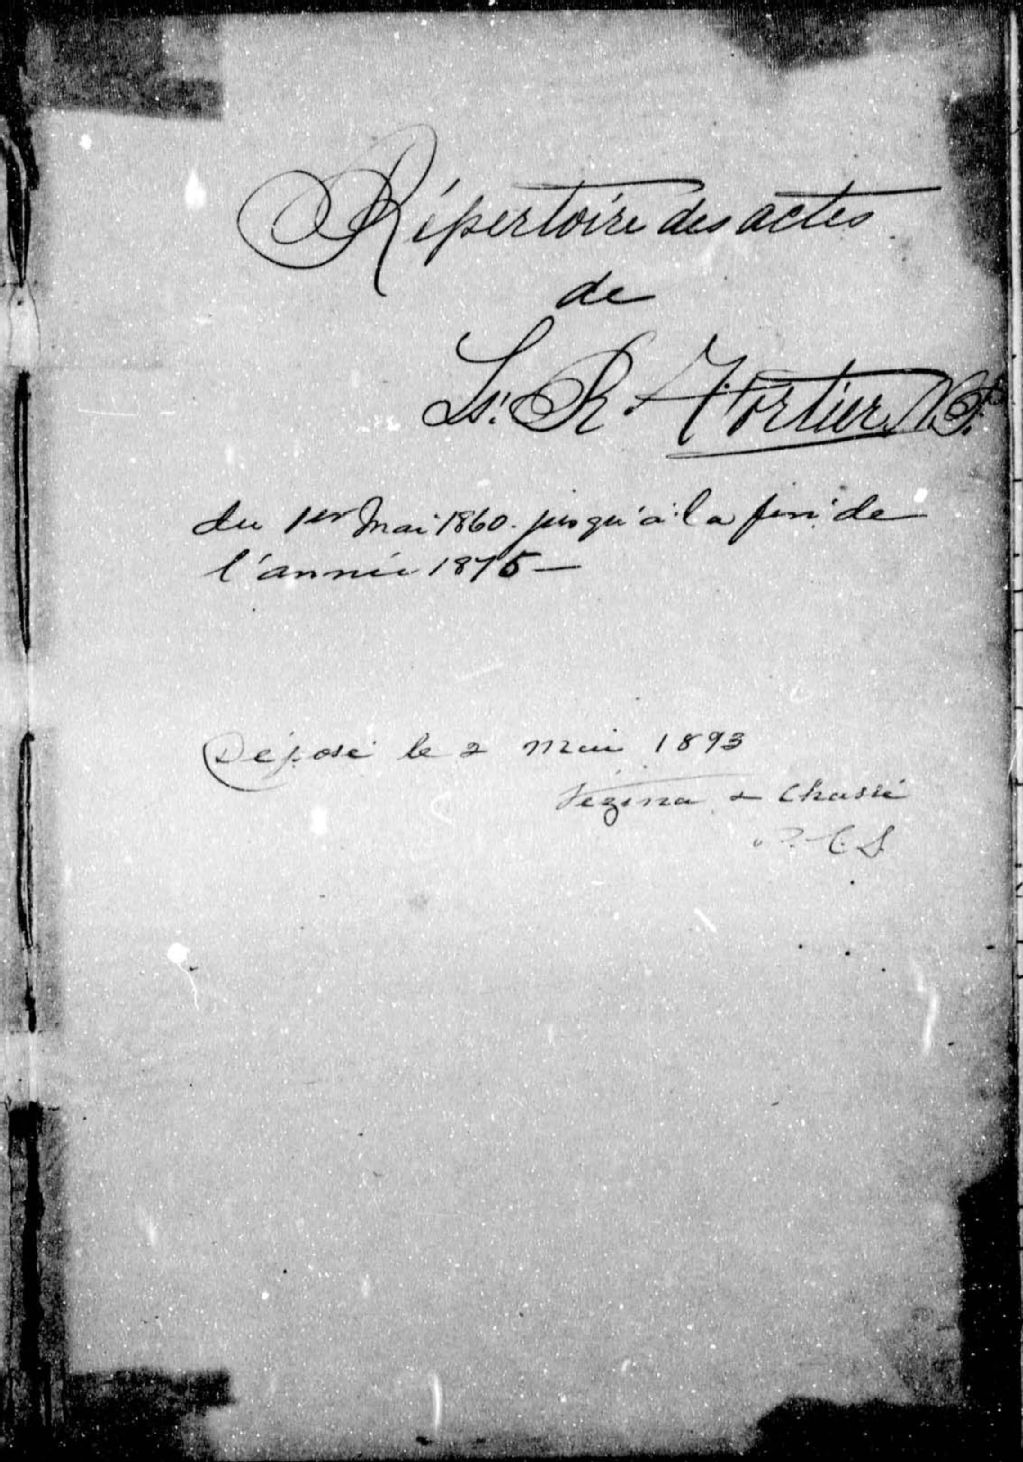 Répertoire des actes
de
Ls. R. Fortier N.P.
du 1er Mai 1860 jusqu'à la fin de
l'année 1875 —
Déposé le 2 Mai 1893
Vézina & Chassé
P. C. S.